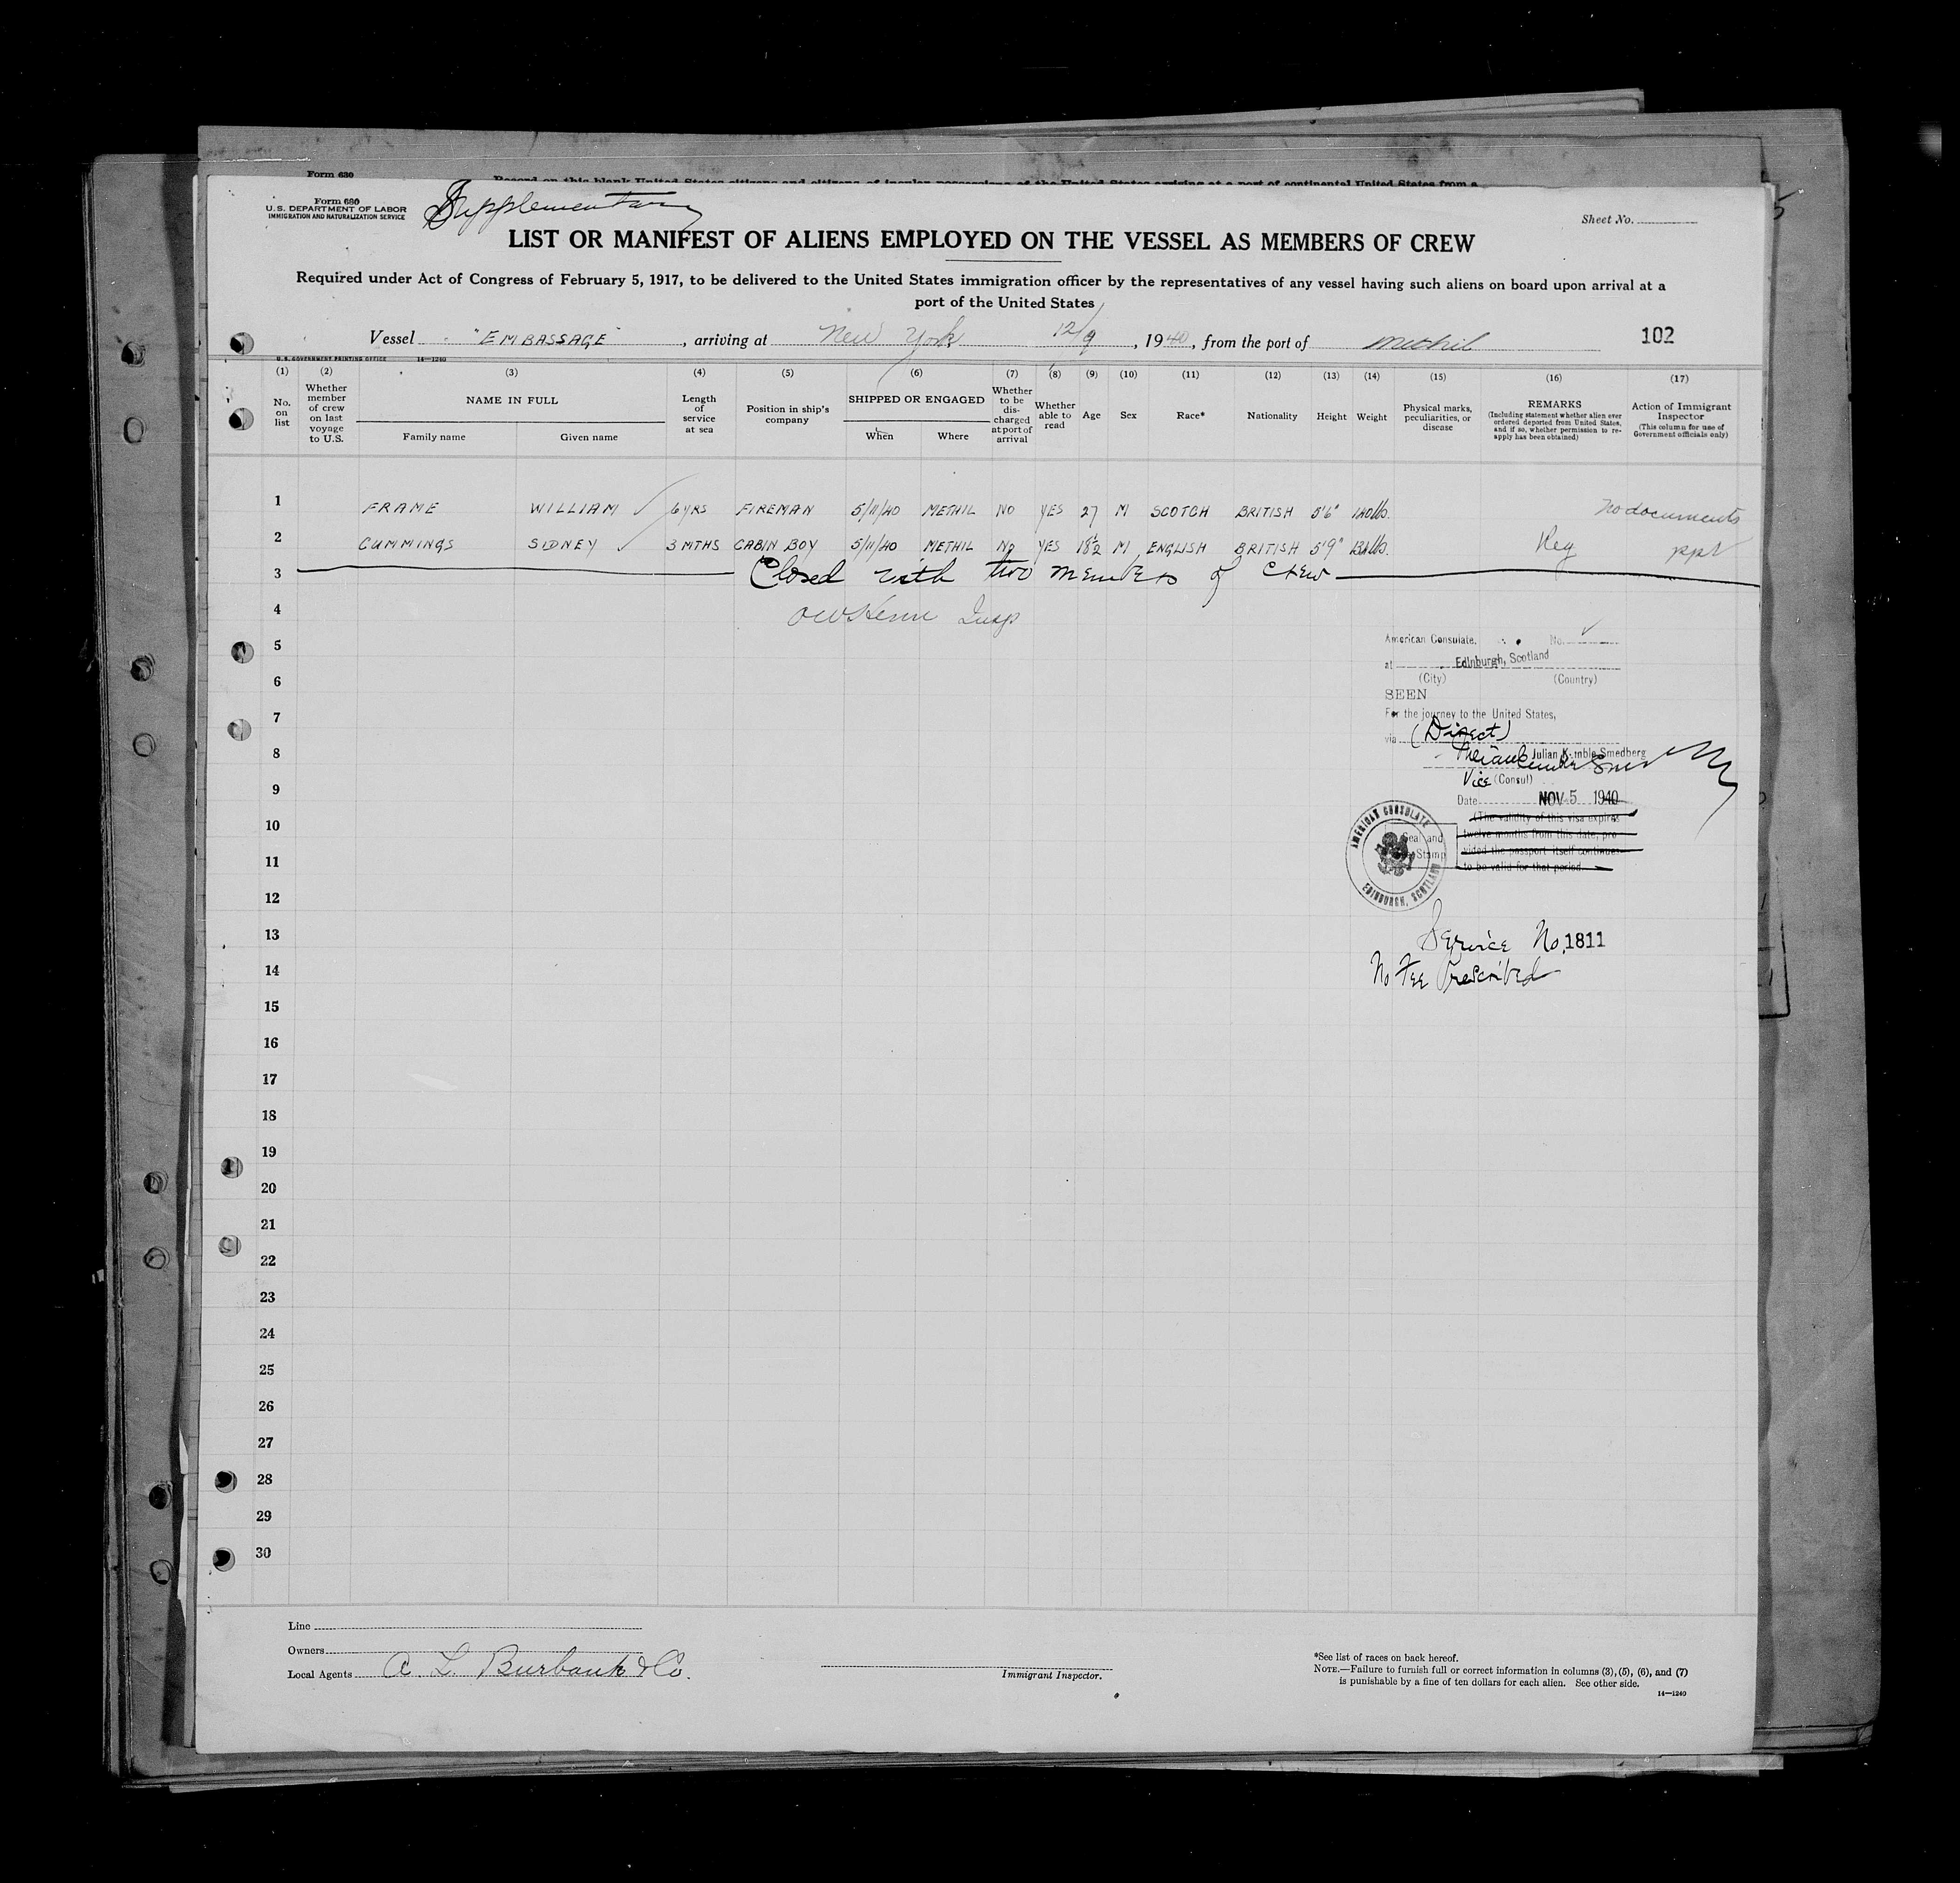 Form 630
Record on this blank United States citizens and citizens of insular possessions of the United States arriving at a port of continental United States from a
Form 680
U.S. DEPARTMENT OF LABOR
IMMIGRATION AND NATURALIZATION SERVICE
Supplementary
Sheet No.
LIST OR MANIFEST OF ALIENS EMPLOYED ON THE VESSEL AS MEMBERS OF CREW
Required under Act of Congress of February 5, 1917, to be delivered to the United States immigration officer by the representatives of any vessel having such aliens on board upon arrival at a
port of the United States
Vessel "EMBASSAGE", arriving at New York 12/9, 1940, from the port of Methil 102
U.S. GOVERNMENT PRINTING OFFICE 14—1240
(1) (2) (3) (4) (5) (6) (7) (8) (9) (10) (11) (12) (13) (14) (15) (16) (17)
No. on list
Whether member of crew on last voyage to U.S.
NAME IN FULL
Family name Given name
Length of service at sea
Position in ship's company
SHIPPED OR ENGAGED
When Where
Whether to be discharged at port of arrival
Whether able to read
Age
Sex
Race*
Nationality
Height
Weight
Physical marks, peculiarities, or disease
REMARKS
(Including statement whether alien ever ordered deported from United States, and if so, whether permission to reapply has been obtained)
Action of Immigrant Inspector
(This column for use of Government officials only)
1 FRAME WILLIAM 6 YRS FIREMAN 5/11/40 METHIL NO YES 27 M SCOTCH BRITISH 5'6" 140lbs. No documents
2 CUMMINGS SIDNEY 3 MTHS CABIN BOY 5/11/40 METHIL NO YES 18½ M ENGLISH BRITISH 5'9" lbs. Reg ppt
3 Closed with two members of crew
4 Insp
5
6
7
8
9
10
11
12
13
14
15
16
17
18
19
20
21
22
23
24
25
26
27
28
29
30
American Consulate. No.
at Edinburgh, Scotland
(City) (Country)
SEEN
For the journey to the United States,
via (Direct)
Julian Kemble Smedberg
Vice (Consul)
Date NOV 5 1940
(The validity of this visa expires
twelve months from this date, pro-
vided the passport itself continues
to be valid for that period.
Seal and
Stamp
AMERICAN CONSULATE
EDINBURGH, SCOTLAND
Service No. 1811
No Fee Prescribed
Line
Owners
Local Agents A. L. Burbank & Co.
Immigrant Inspector.
*See list of races on back hereof.
NOTE.—Failure to furnish full or correct information in columns (3), (5), (6), and (7)
is punishable by a fine of ten dollars for each alien. See other side.
14—1240